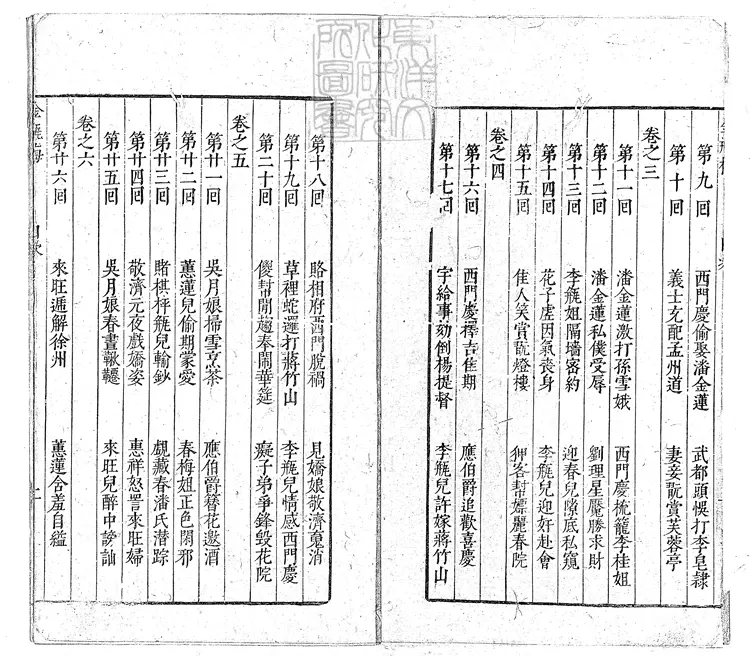 東洋文
化研究
所圖書
第九回 西門慶偷娶潘金蓮 武都頭悞打李皂隸
第十回 義士充配孟州道 妻妾翫賞芙蓉亭
卷之三
第十一回 潘金蓮激打孫雪娥 西門慶梳籠李桂姐
第十二回 潘金蓮私僕受辱 劉理星魘勝求財
第十三回 李瓶姐隔墻密約 迎春兒隙底私窺
第十四回 花子虛因氣喪身 李瓶兒迎奸赴會
第十五回 佳人笑賞翫燈樓 狎客幫嫖麗春院
卷之四
第十六回 西門慶擇吉佳期 應伯爵追歡喜慶
第十七回 宇給事劾倒楊提督 李瓶兒許嫁蔣竹山
第十八回 賂相府西門脫禍 見嬌娘敬濟䰟消
第十九回 草裡蛇邏打蔣竹山 李瓶兒情感西門慶
第二十回 儍幫閒趨奉鬧華筵 癡子弟爭鋒毀花院
卷之五
第廿一回 吳月娘掃雪烹茶 應伯爵簪花邀酒
第廿二回 蕙蓮兒偷期蒙愛 春梅姐正色閑邪
第廿三回 賭棋枰瓶兒輸鈔 覷藏春潘氏潛踪
第廿四回 敬濟元夜戲嬌姿 惠祥怒詈來旺婦
第廿五回 吳月娘春晝鞦韆 來旺兒醉中謗訕
卷之六
第廿六回 來旺遞解徐州 蕙蓮含羞自縊
金瓶梅 目次